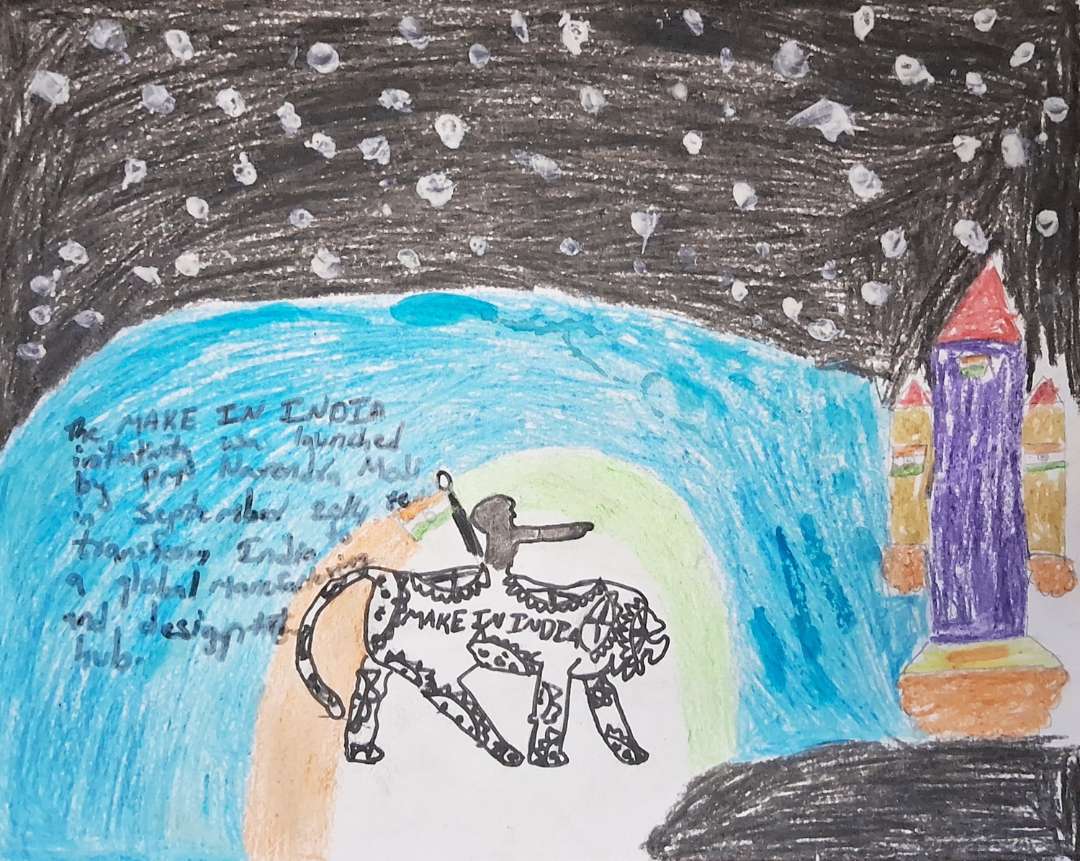 The MAKE IN INDIA
was launched
by Narendra Modi
in September 2014
transform India
a global manufacturing
and
hub.
MAKE IN INDIA